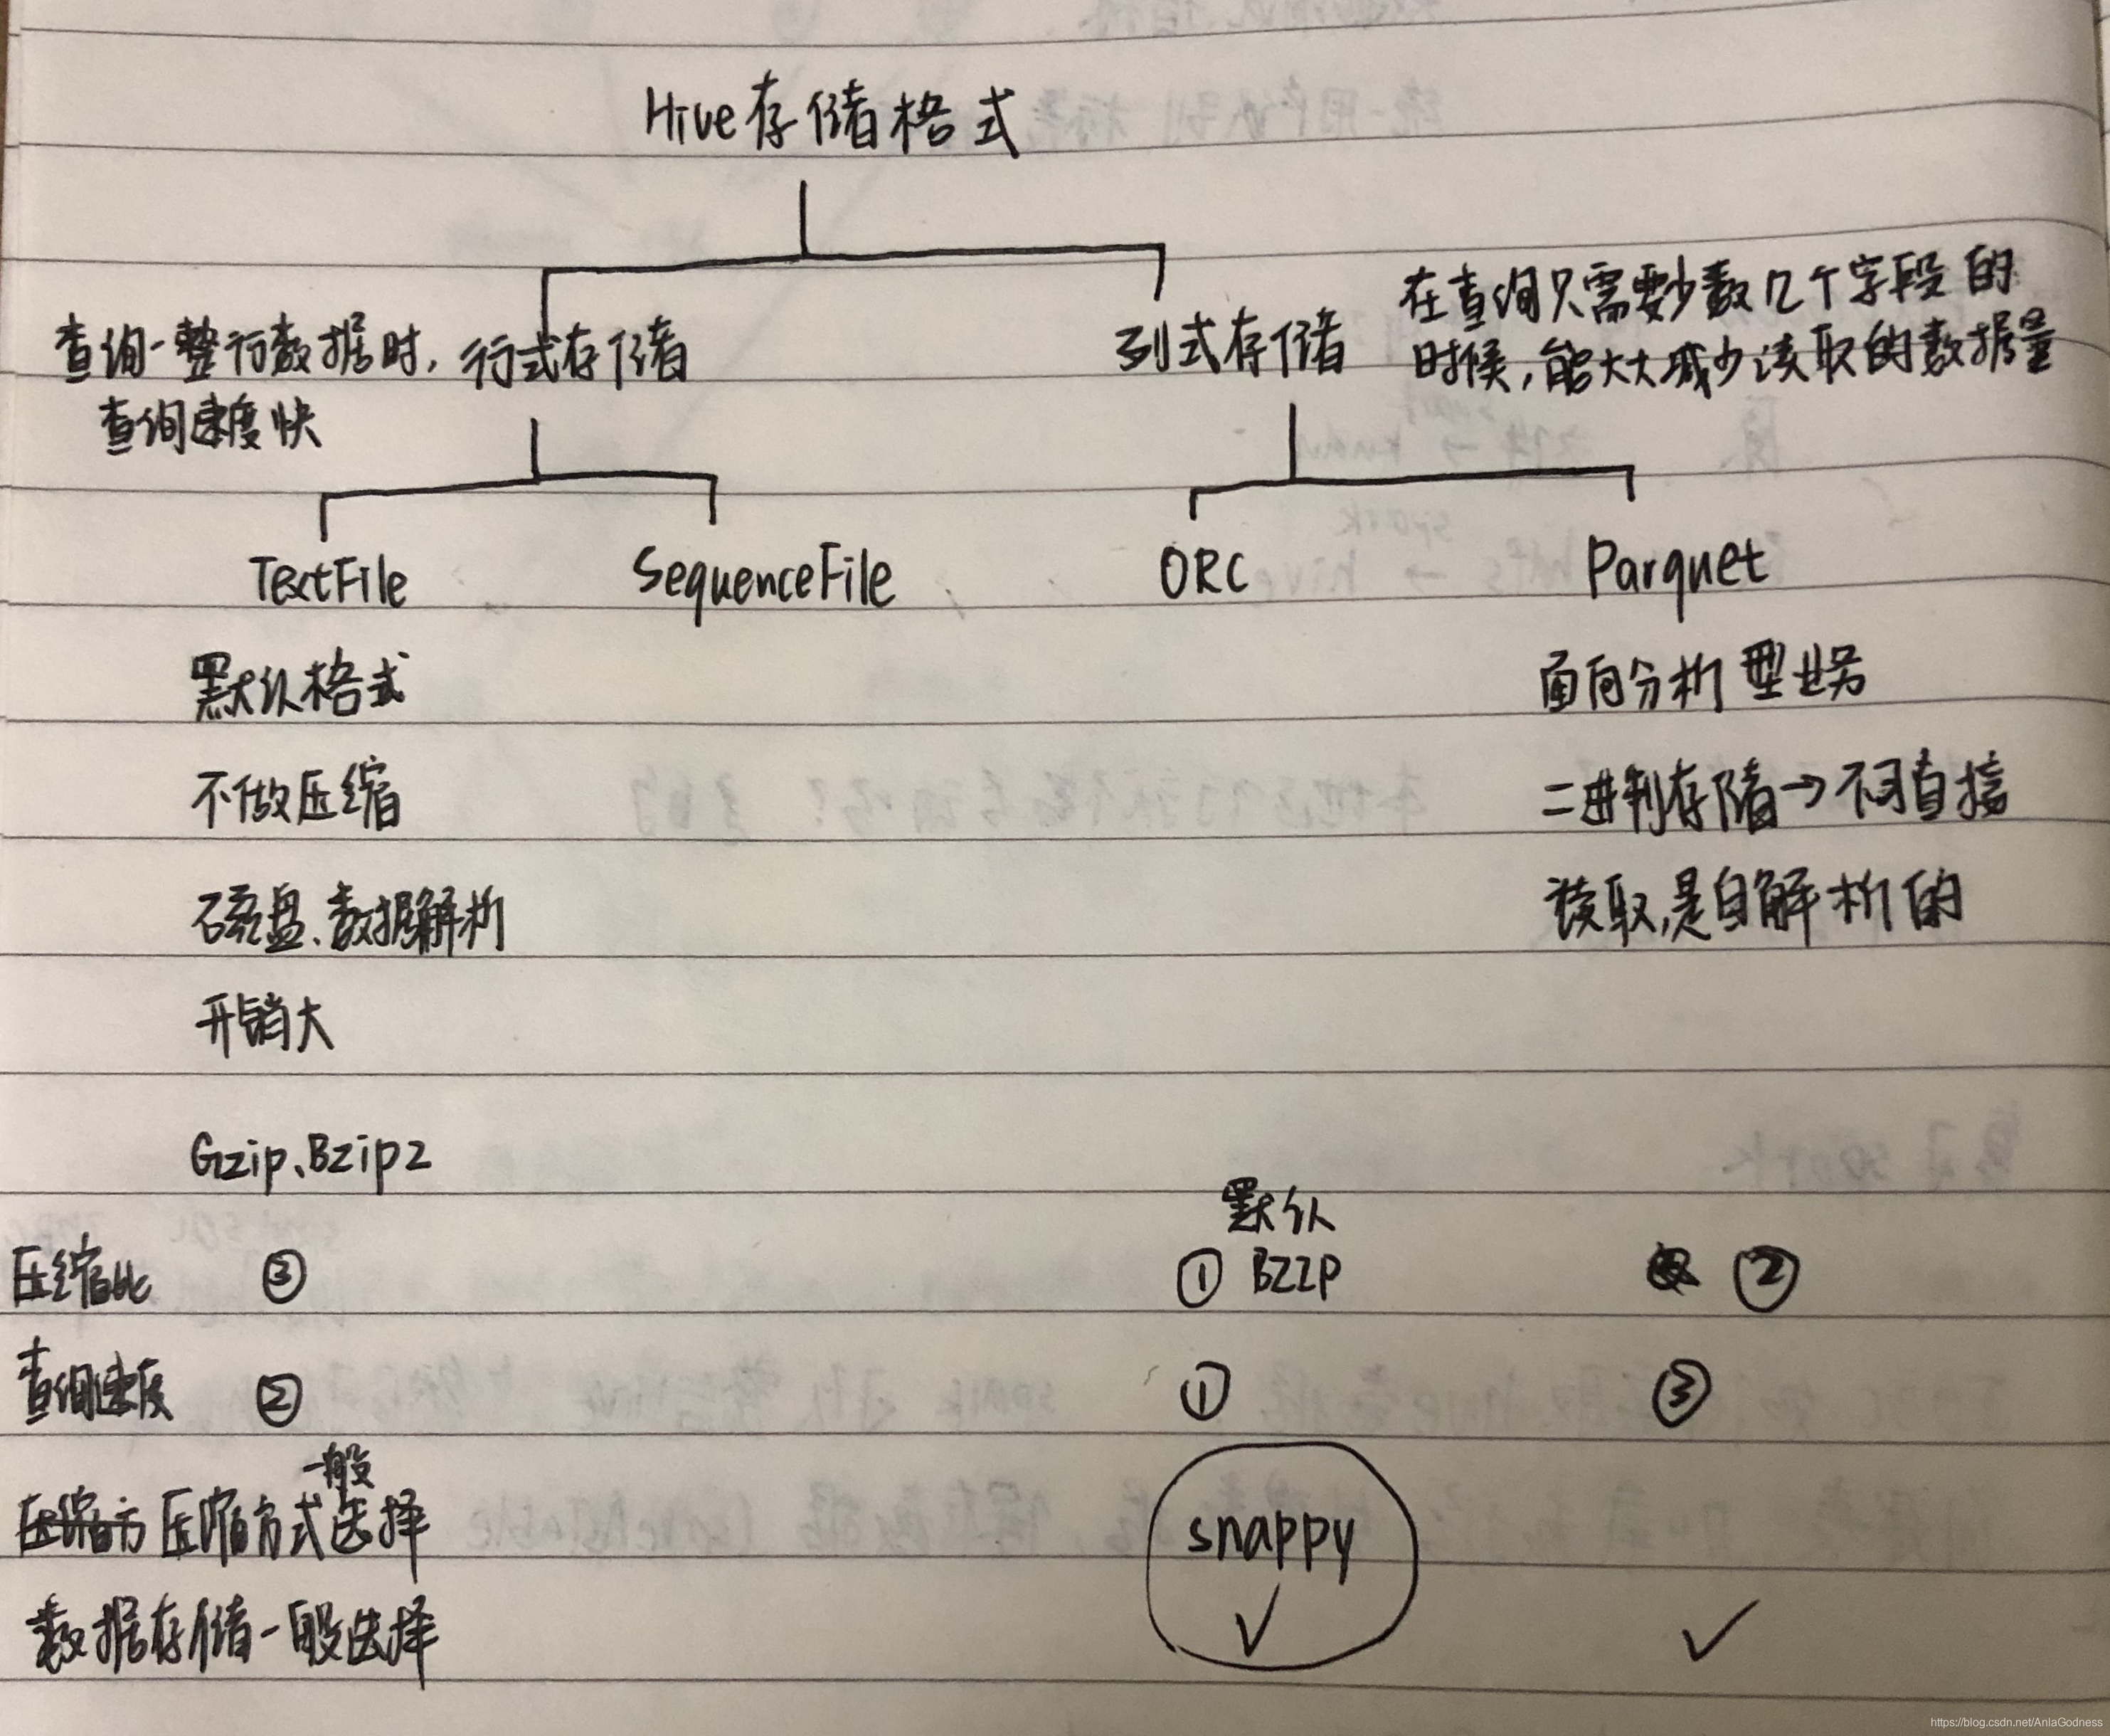 Hive存储格式
查询一整行数据时,
查询速度快
行式存储
列式存储
在查询只需要少数几个字段的
时候,能大大减少读取的数据量
TextFile
SequenceFile
ORC
Parquet
默认格式
不做压缩
磁盘、数据解析
开销大
Gzip、Bzip2
面向分析型业务
二进制存储→不可直接
读取,是自解析的
压缩比 ③ ① 默认 BZZP ②
查询速度 ② ① ③
压缩方 压缩方式一般选择 snappy
数据存储一般选择 ✓ ✓
https://blog.csdn.net/AnlaGodness